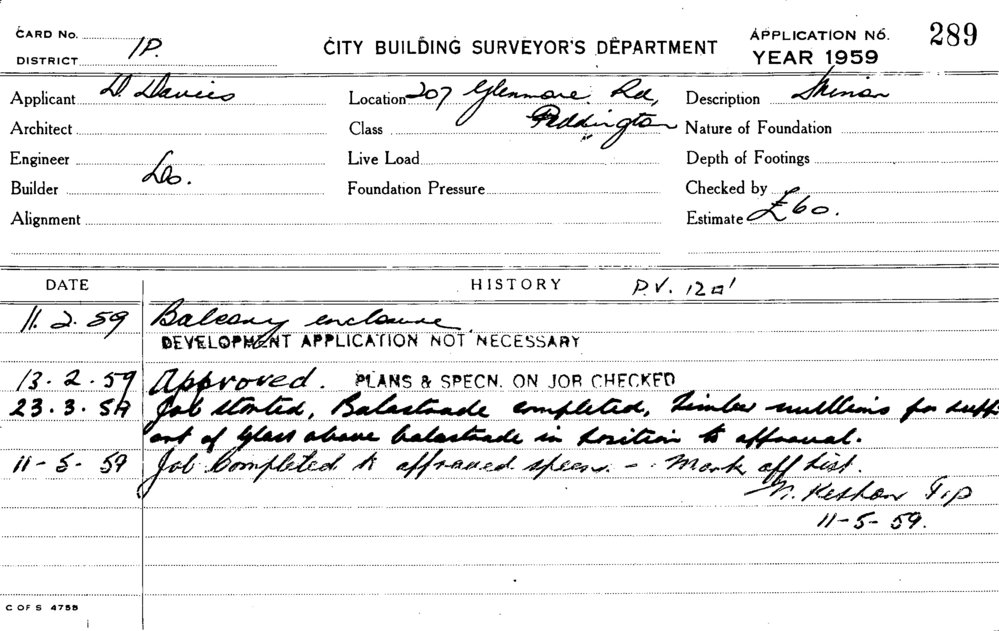 CARD No.
DISTRICT 1P.
CITY BUILDING SURVEYOR'S DEPARTMENT
APPLICATION No. 289
YEAR 1959
Applicant D. Davies
Location 207 Glenmore Rd,
Paddington
Description Minor
Architect
Class
Nature of Foundation
Engineer
Live Load
Depth of Footings
Builder Do.
Foundation Pressure
Checked by
Alignment
Estimate £60.
DATE
HISTORY P.V. 12
11.2.59 Balcony enclosure
DEVELOPMENT APPLICATION NOT NECESSARY
13.2.59 Approved. PLANS & SPECN. ON JOB CHECKED
23.3.59 Job started, Balastrade completed, timber mulllions for supp
ort of glass above balastrade in position to approval.
11-5-59 Job Completed to approved specn. - Mark off list.
11-5-59.
C OF S 475B